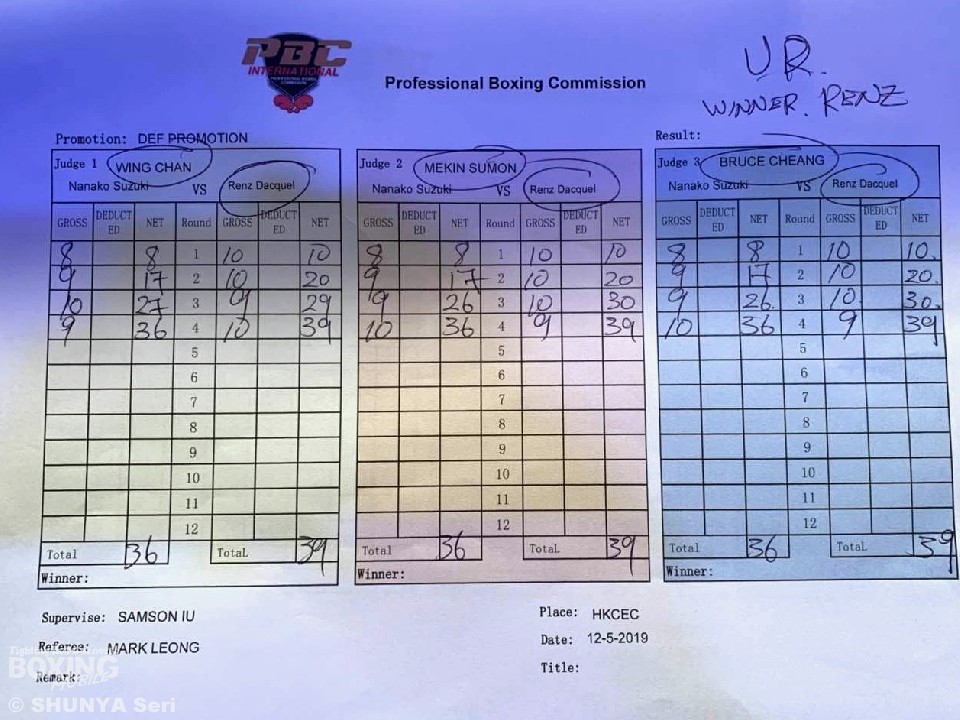 PBC
INTERNATIONAL
PROFESSIONAL BOXING
COMMISSION
Professional Boxing Commission
U R.
WINNER. RENZ
Promotion: DEF PROMOTION
Result:
Judge 1 WING CHAN
Nanako Suzuki VS Renz Dacquel
GROSS DEDUCTED NET Round GROSS DEDUCTED NET
8 8 1 10 10
9 17 2 10 20
10 27 3 9 29
9 36 4 10 39
5
6
7
8
9
10
11
12
Total 36 TotaL 39
Winner:
Judge 2 MEKIN SUMON
Nanako Suzuki VS Renz Dacquel
GROSS DEDUCTED NET Round GROSS DEDUCTED NET
8 8 1 10 10
9 17 2 10 20
9 26 3 10 30
10 36 4 9 39
5
6
7
8
9
10
11
12
Total 36 TotaL 39
Winner:
Judge 3 BRUCE CHEANG
Nanako Suzuki VS Renz Dacquel
GROSS DEDUCTED NET Round GROSS DEDUCTED NET
8 8 1 10 10.
9 17 2 10 20.
9 26. 3 10 30.
10 36 4 9 39
5
6
7
8
9
10
11
12
Total 36 TotaL 39
Winner:
Supervise: SAMSON IU
Referee: MARK LEONG
Remark:
Place: HKCEC
Date: 12-5-2019
Title:
BOXING
MOBILE
© SHUNYA Seri